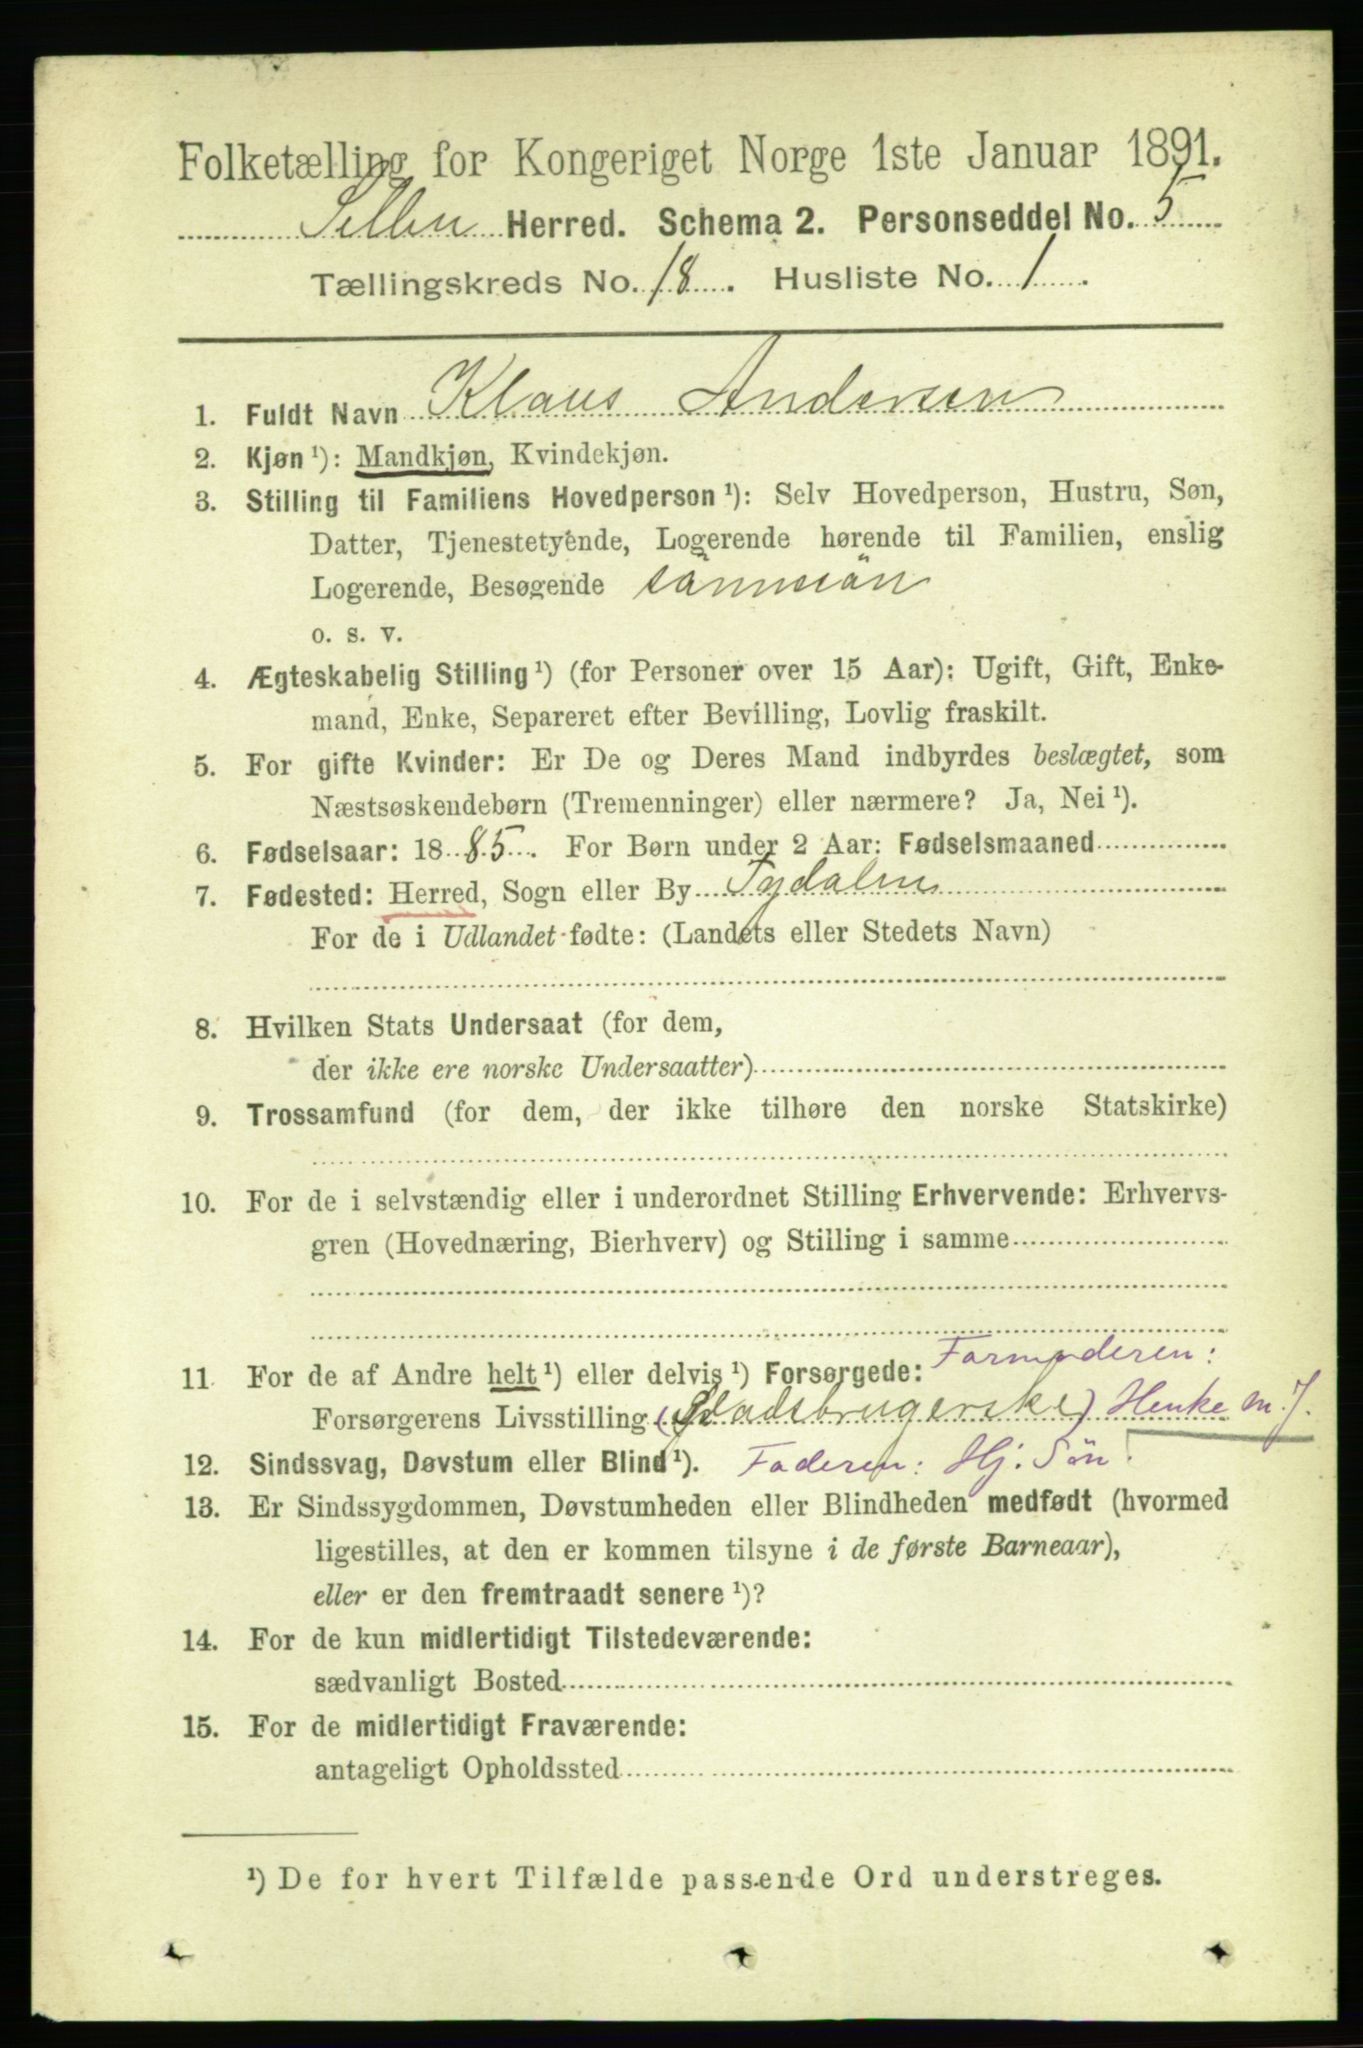 Folketælling for Kongeriget Norge 1ste Januar 1891.
Selbu Herred. Schema 2. Personseddel No. 5
Tællingskreds No. 18. Husliste No. 1.
1. Fuldt Navn Klaus Andersen
2. Kjøn ¹): Mandkjøn, Kvindekjøn.
3. Stilling til Familiens Hovedperson ¹): Selv Hovedperson, Hustru, Søn,
Datter, Tjenestetyende, Logerende hørende til Familien, enslig
Logerende, Besøgende sönnesön
o. s. v.
4. Ægteskabelig Stilling ¹) (for Personer over 15 Aar): Ugift, Gift, Enke-
mand, Enke, Separeret efter Bevilling, Lovlig fraskilt.
5. For gifte Kvinder: Er De og Deres Mand indbyrdes beslægtet, som
Næstsøskendebørn (Tremenninger) eller nærmere? Ja, Nei ¹).
6. Fødselsaar: 1885. For Børn under 2 Aar: Fødselsmaaned
7. Fødested: Herred, Sogn eller By Tydalen
For de i Udlandet fødte: (Landets eller Stedets Navn)
8. Hvilken Stats Undersaat (for dem,
der ikke ere norske Undersaatter)
9. Trossamfund (for dem, der ikke tilhøre den norske Statskirke)
10. For de i selvstændig eller i underordnet Stilling Erhvervende: Erhvervs-
gren (Hovednæring, Bierhverv) og Stilling i samme
Farmoderen:
11. For de af Andre helt ¹) eller delvis ¹) Forsørgede:
Forsørgerens Livsstilling (Pladsbrugerske) Henke m. J.
12. Sindssvag, Døvstum eller Blind ¹). Faderen: Hj. Sön.
13. Er Sindssygdommen, Døvstumheden eller Blindheden medfødt (hvormed
ligestilles, at den er kommen tilsyne i de første Barneaar),
eller er den fremtraadt senere ¹)?
14. For de kun midlertidigt Tilstedeværende:
sædvanligt Bosted
15. For de midlertidigt Fraværende:
antageligt Opholdssted
¹) De for hvert Tilfælde passende Ord understreges.